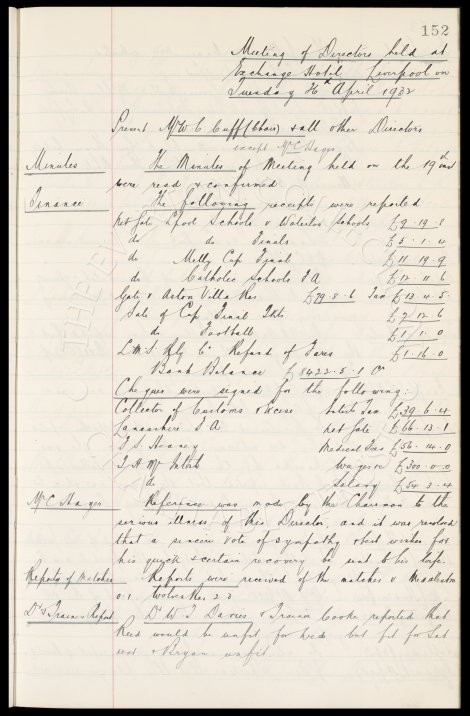 152
Meeting of Directors held at
Exchange Hotel Liverpool on
Tuesday 26th April 1932
Present Mr W C Cuff (Chair) & all other Directors
except Mr C
Minutes The Minutes of Meeting held on the 19th inst
were read & confirmed.
Finance The following receipts were reported
Net Gate L'pool Schools v Waterloo Schools £9-19-8
do do Finals £5-1-4
do Melly Cup Final £11-19-9
do Catholic Schools F A £12-11-6
Gate v Aston Villa Res. £79-8-6 Tax £13-4-5
Sale of Cup Final Tkts £7-12-6
do Football £1-1-0
L.M.S. Rly Co Refund of Fares £1-16-0
Bank Balance £8422-5-1 Cr
Cheques were signed for the following:
Collector of Customs & Excise Tax £39-6-4
Lancashire F A Net Gate £66-13-1
Medical Fees £56-14-0
T. H. McIntosh Wages £300-0-0
do Salary £54-3-4
Mr C Reference was made by the Chairman to the
serious illness of this Director, and it was resolved
that a sincere vote of sympathy & best wishes for
his quick & certain recovery be sent to his
Reports of matches Reports were received of the matches v
0-1 Wolves Res 2-3
Dr & Trainers Report Dr W. J. Davies & Trainer Cooke reported that
Reed would be unfit for but fit for Sat
& unfit.